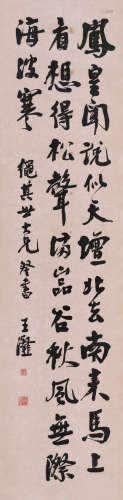 鳳皇聞說似天壇北去南来馬上
看想得松聲滿嵓谷秋風無際
海波寒
繩其世大兄癸書
王瓘